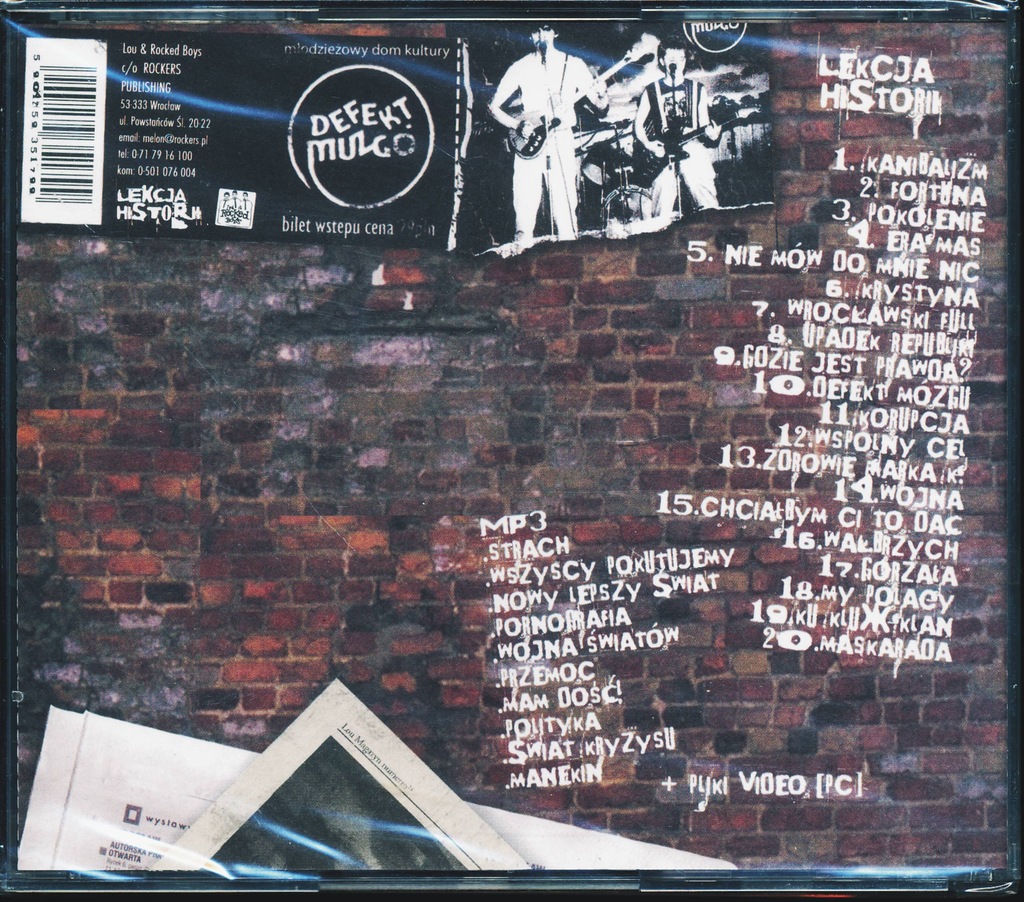 Lou & Rocked Boys
c/o ROCKERS
PUBLISHING
53 333 Wrocław
ul. Powstańców Śl. 20-22
email: melon@rockers.pl
tel: 0-71 79 16 100
kom: 0-501 076 004
LEKCJA
HISTORII
Rocked
młodzieżowy dom kultury
DEFEKT
MUZGO
bilet wstepu cena
MUZGO
LEKCJA
HISTORII
1. KANIBALIZM
2. FORTUNA
3. POKOLENIE
4. ERA MAS
5. NIE MÓW DO MNIE NIC
6. KRYSTYNA
7. WROCŁAWSKI FULL
8. UPADEK REPUBLIK
9. GDZIE JEST PRAWDA?
10. DEFEKT MÓZGU
11. KORUPCJA
12. WSPOLNY CEL
13. ZDROWIE MARKA K.
14. WOJNA
15. CHCIAŁBYM CI TO DAC
16. WAŁBRZYCH
17. GORZAŁA
18. MY POLACY
19. KU KLUX KLAN
20. MASKARADA
MP3
.STRACH
.WSZYSCY POKUTUJEMY
.NOWY LEPSZY ŚWIAT
.PORNOGRAFIA
.WOJNA ŚWIATÓW
.PRZEMOC
.MAM DOŚĆ!
.POLITYKA
.ŚWIAT KRYZYSU
.MANEKIN
+ PLIKI VIDEO [PC]
Lou Magazyn numer
wysław
AUTORSKA
OTWARTA